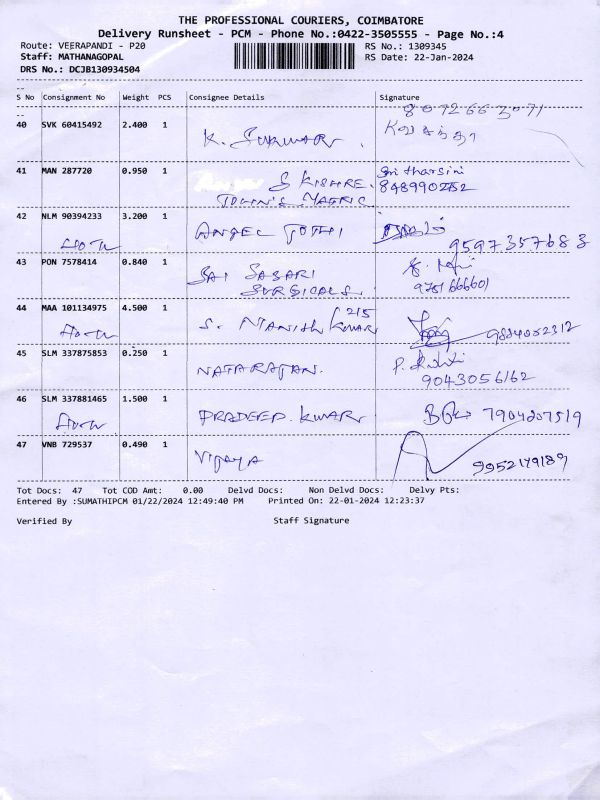 THE PROFESSIONAL COURIERS, COIMBATORE
Delivery Runsheet - PCM - Phone No.:0422-3505555 - Page No.:4
Route: VEERAPANDI - P20
RS No.: 1309345
Staff: MATHANAGOPAL
RS Date: 22-Jan-2024
DRS No.: DCJB130934504
S No Consignment No Weight PCS Consignee Details Signature
8072663071
40 SVK 60415492 2.400 1 K.
41 MAN 287720 0.950 1 S KISHRE. Sri tharsini
JOHN'S MATRIC 8489902752
42 NLM 90394233 3.200 1 ANGEL JOTHI
9597357683
43 PON 7578414 0.840 1 SAI SABARI
SURGICALS 9751666601
44 MAA 101134975 4.500 1 S. MANISH KUMAR 215
9884052312
45 SLM 337875853 0.250 1 NATARAJAN. P.
9043056162
46 SLM 337881465 1.500 1 PRADEEP. KUMAR 7904207519
47 VNB 729537 0.490 1 VIJAYA
9952179189
Tot Docs: 47 Tot COD Amt: 0.00 Delvd Docs: Non Delvd Docs: Delvy Pts:
Entered By :SUMATHIPCM 01/22/2024 12:49:40 PM Printed On: 22-01-2024 12:23:37
Verified By Staff Signature